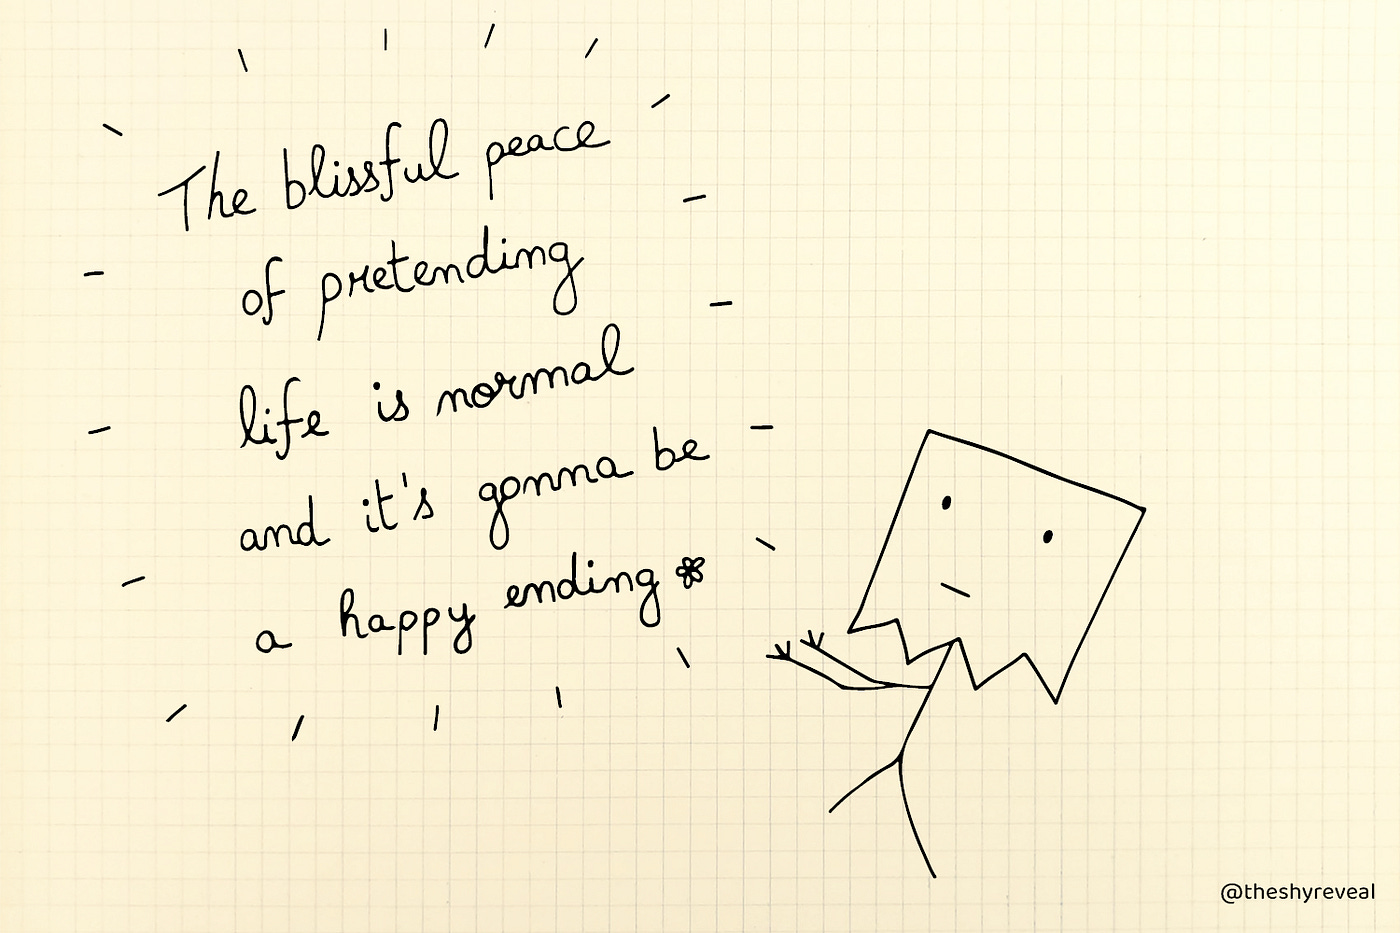 The blissful peace
of pretending
life is normal
and it's gonna be
a happy ending
@theshyreveal